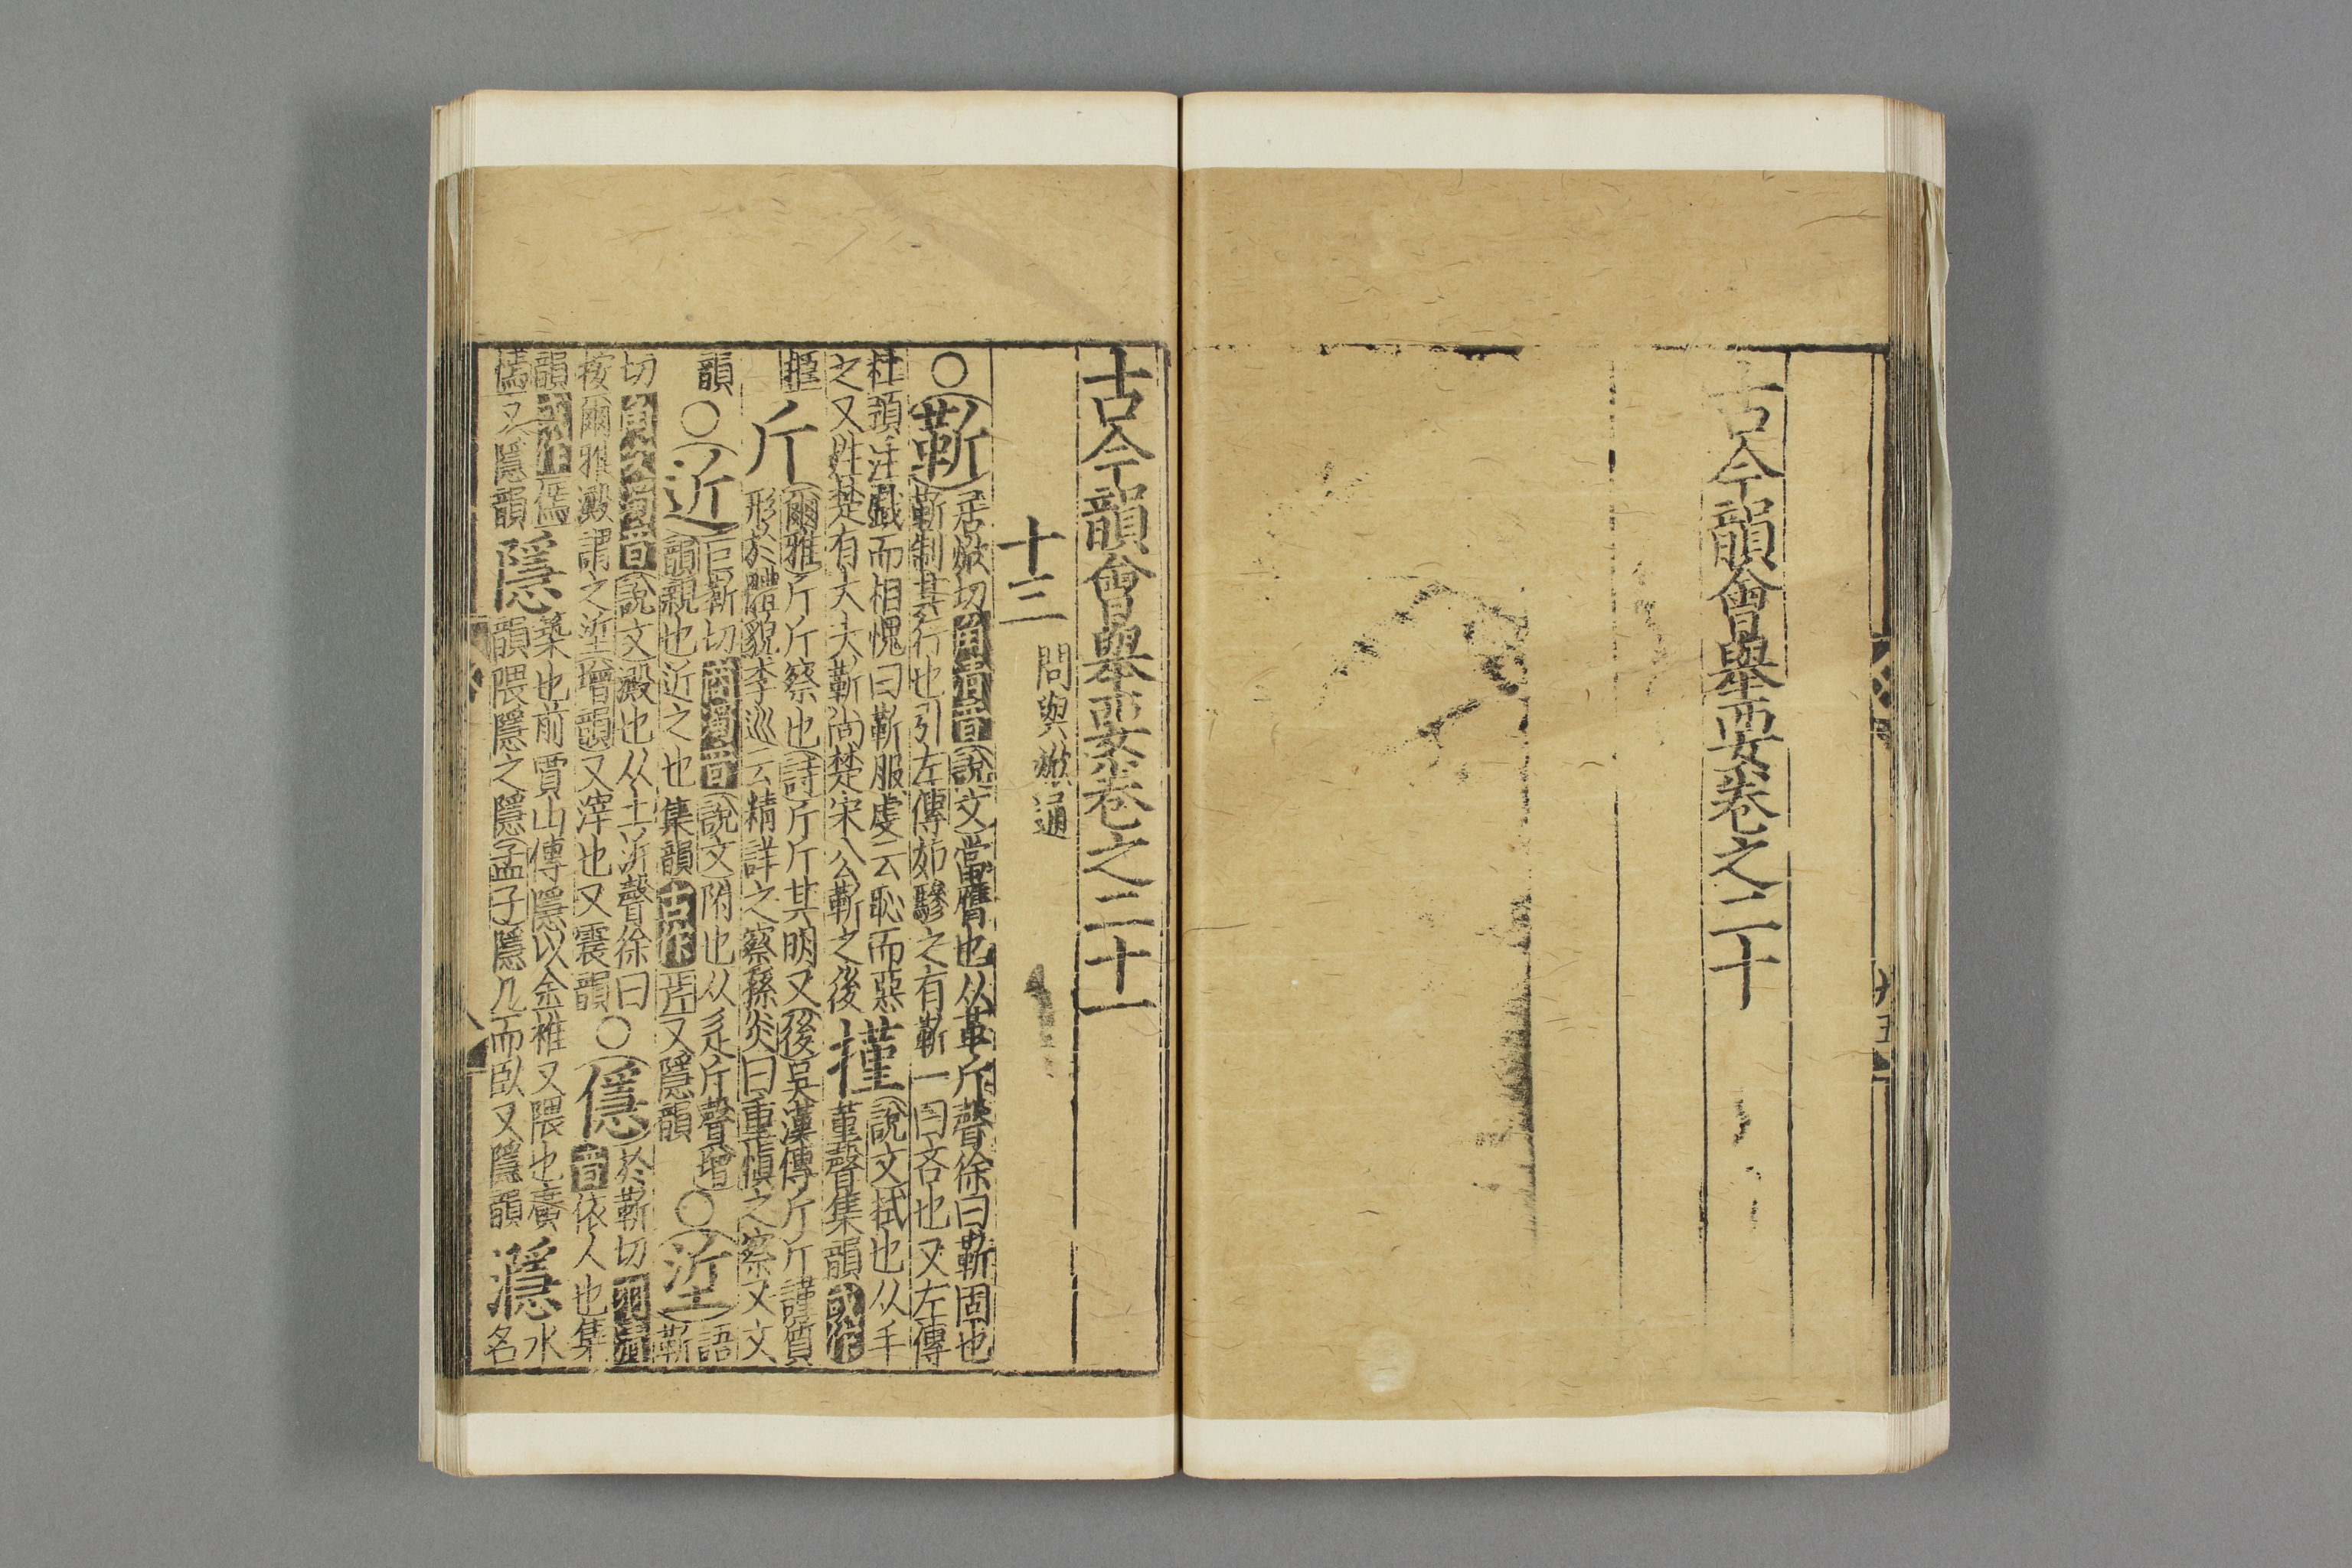 古今韻會舉要卷之二十
十五
古今韻會舉要卷之二十一
十三 問與焮通
○靳 居焮切角清音說文當膺也从革斤聲徐曰靳固也
靳制其行也引左傳如驂之有靳一曰吝也又左傳
杜預注戲而相愧曰靳服虔云恥而惡
之又姓楚有大夫靳尚楚宋公靳之後
㨷 說文拭也从手
堇聲集韻或作
斤 爾雅斤斤察也詩斤斤其明又後吳漢傳斤斤謹質
形於體貌李巡云精詳之察孫炎曰重慎之察又文
韻○近 巨靳切角濁音說文附也从辵斤聲增
韻親也近之也集韻古作又隱韻
○垽 語靳
切角次濁音說文澱也从土沂聲徐曰
按爾雅澱謂之垽增韻又滓也又震韻
○㒚 於靳切羽清
音依人也集
韻或作
又隱韻
隱 築也前賈山傳隱以金椎又隈也廣
韻隈隱之隱孟子隱几而臥又隱韻
濦 水
名